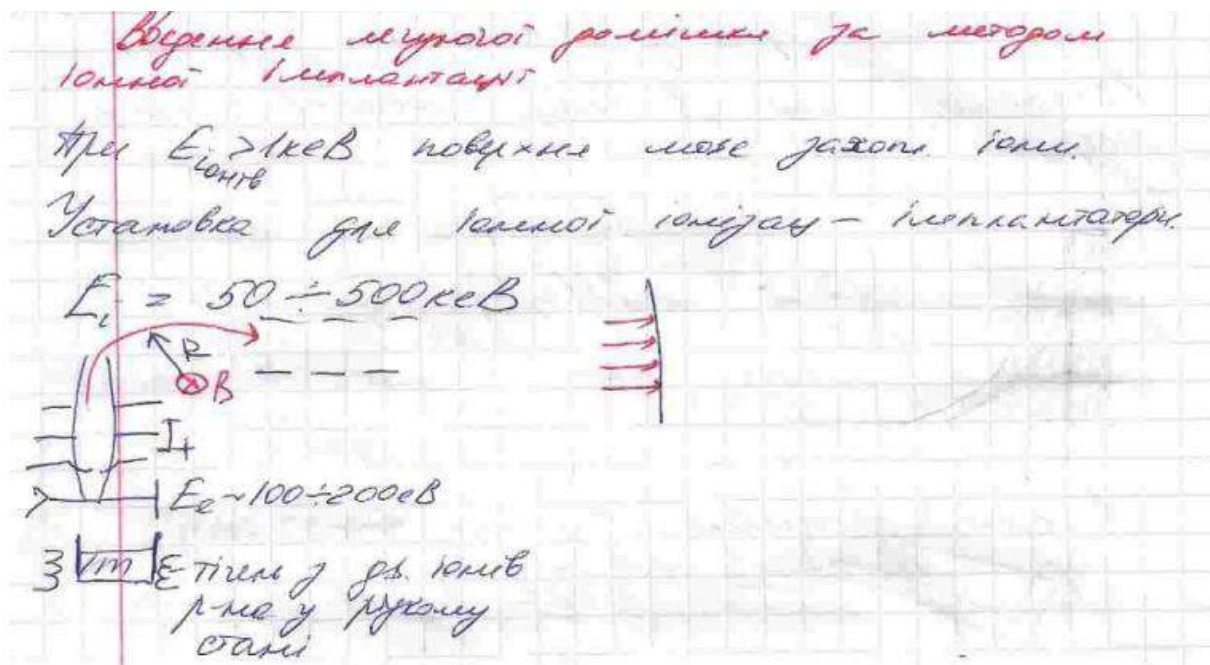 Введення легуючої домішки за методом
іонної імплантації
При E іонів >1кеВ поверхня може захопл. іони.
Установка для іонної іонізац – імплантатори.
Ei = 50 ÷ 500кеВ
R
B
I+
Ee ~ 100÷200еВ
m
тігель з дж. іонів
р-на у рідкому
стані